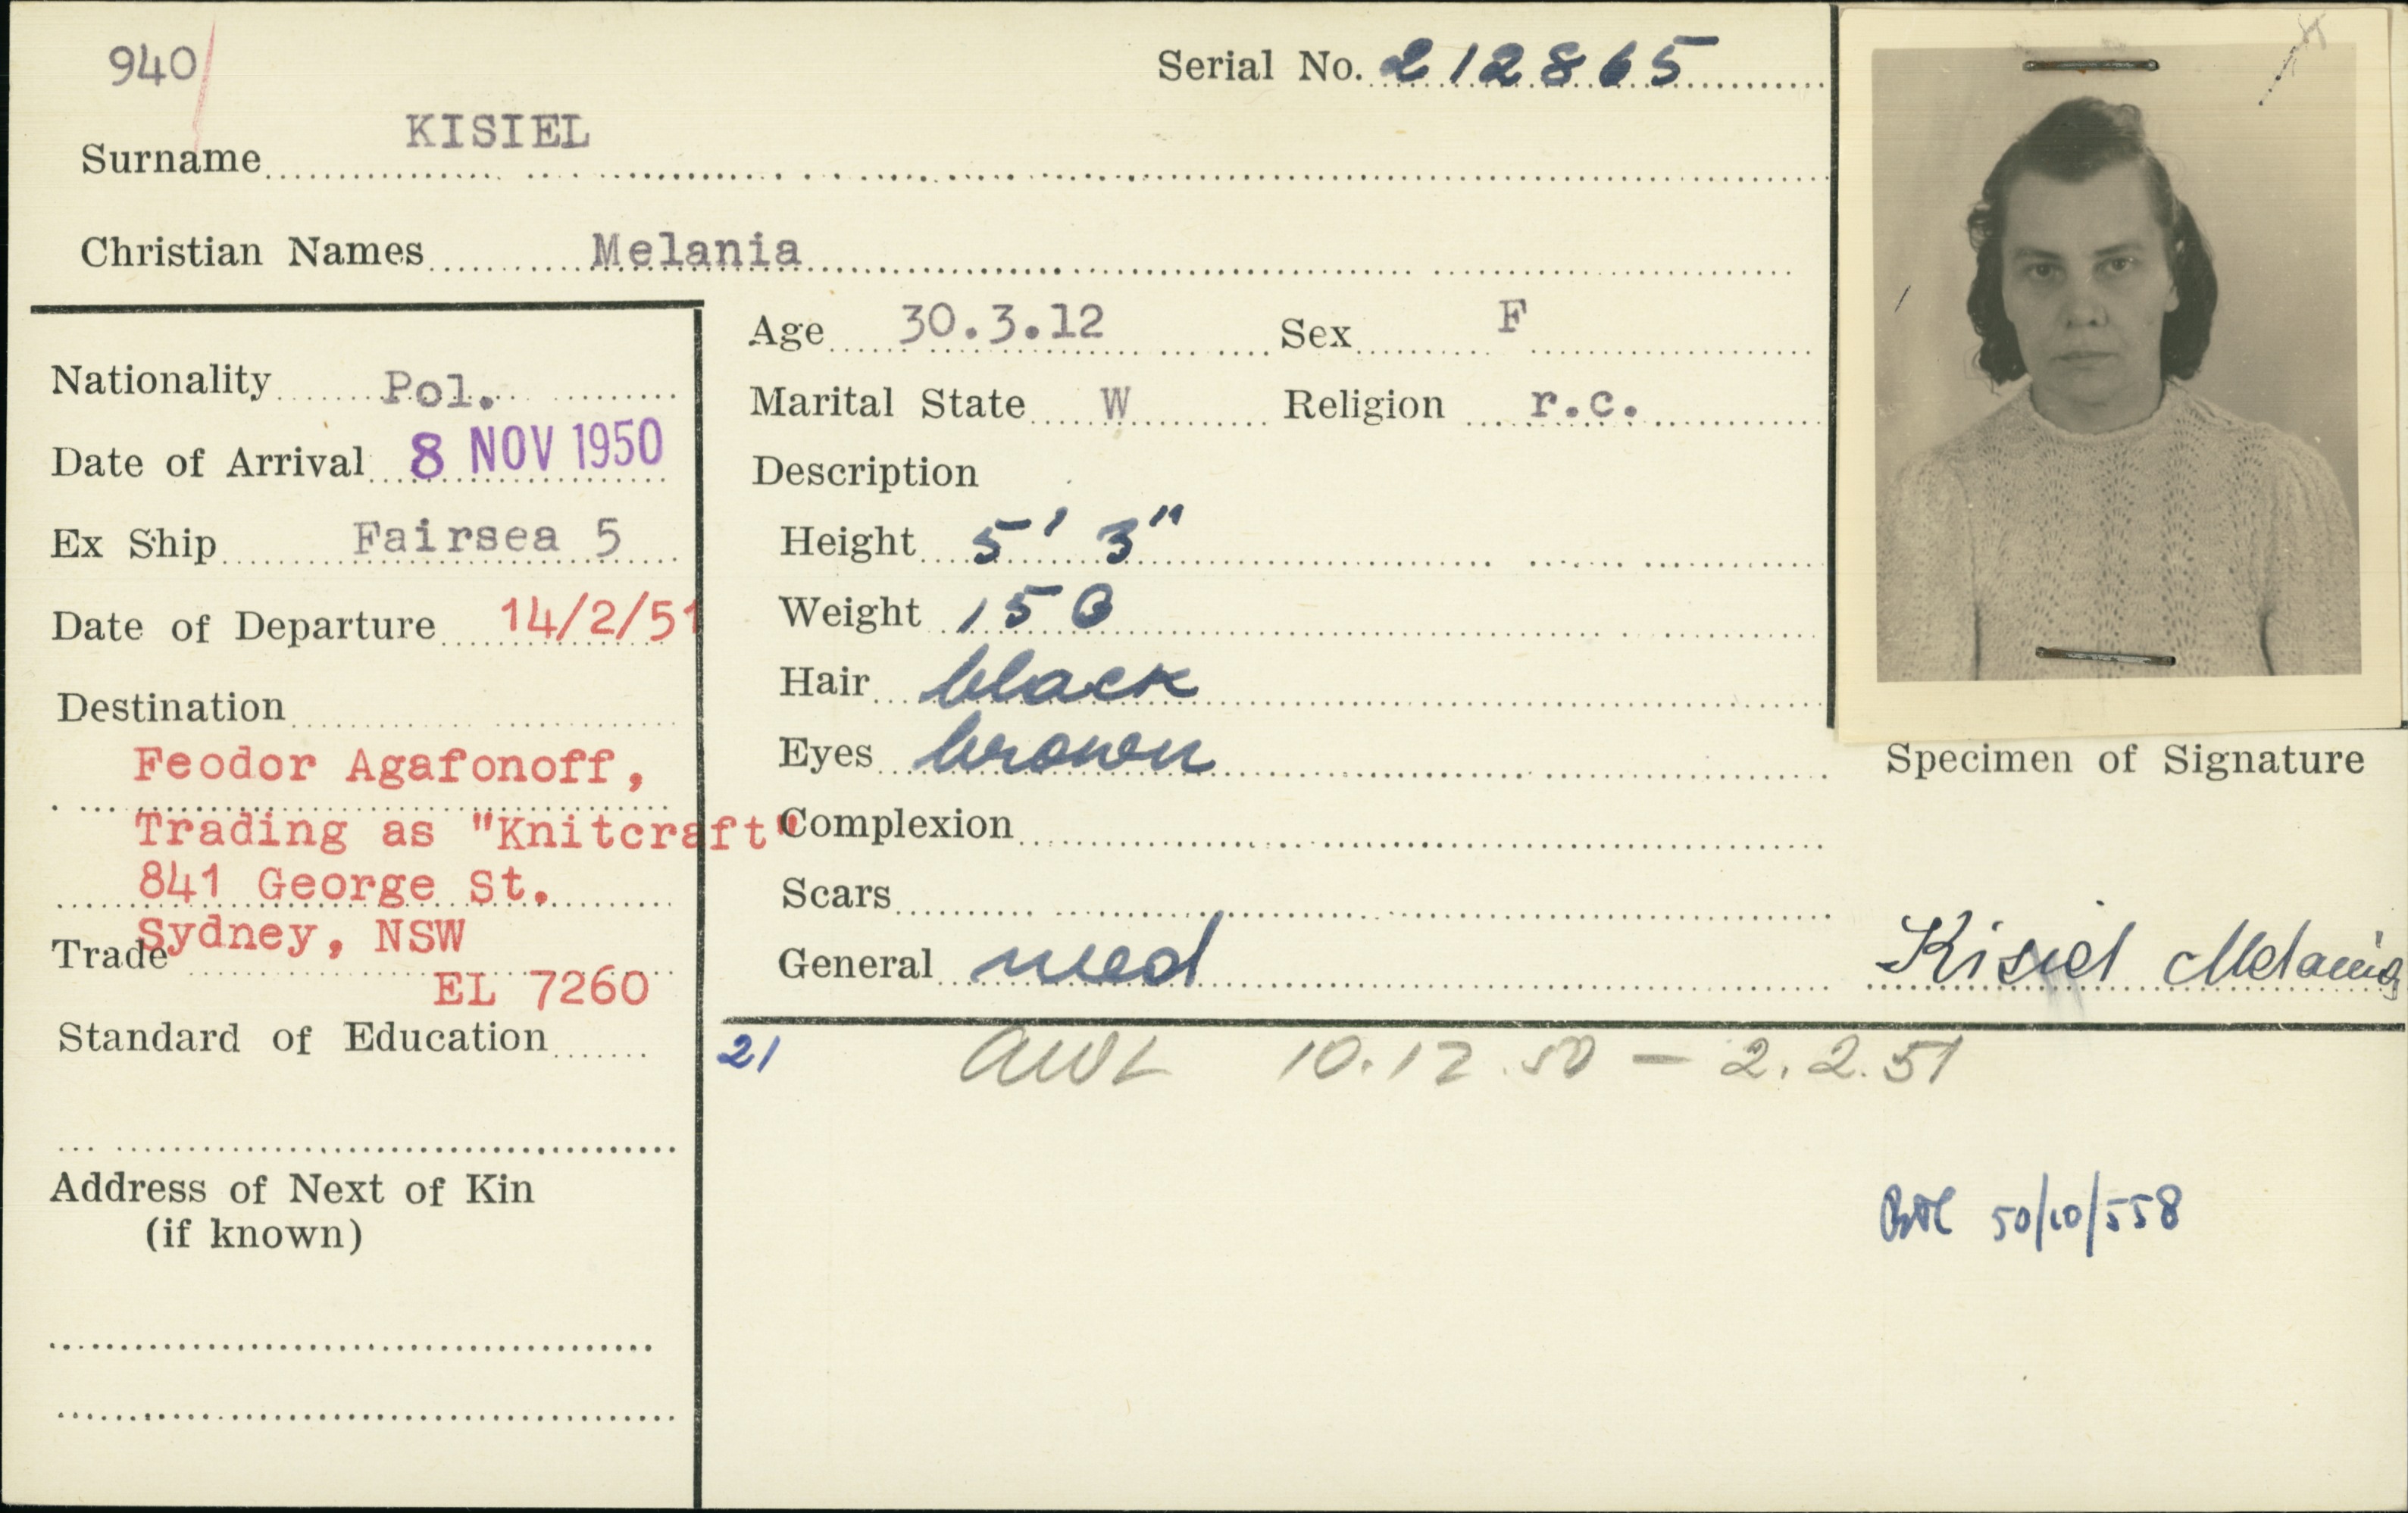 940
Serial No. 212865
Surname KISIEL
Christian Names Melania
Nationality Pol.
Date of Arrival 8 NOV 1950
Ex Ship Fairsea 5
Date of Departure 14/2/51
Destination
Feodor Agafonoff,
Trading as "Knitcraft"
841 George St.
Sydney, NSW
Trade
EL 7260
Standard of Education
Address of Next of Kin
(if known)
Age 30.3.12 Sex F
Marital State W Religion r.c.
Description
Height 5' 3"
Weight 150
Hair black
Eyes brown
Complexion
Scars
General med
Specimen of Signature
Kisiel Melania
21 AWL 10.12.50 — 2.2.51
50/10/558